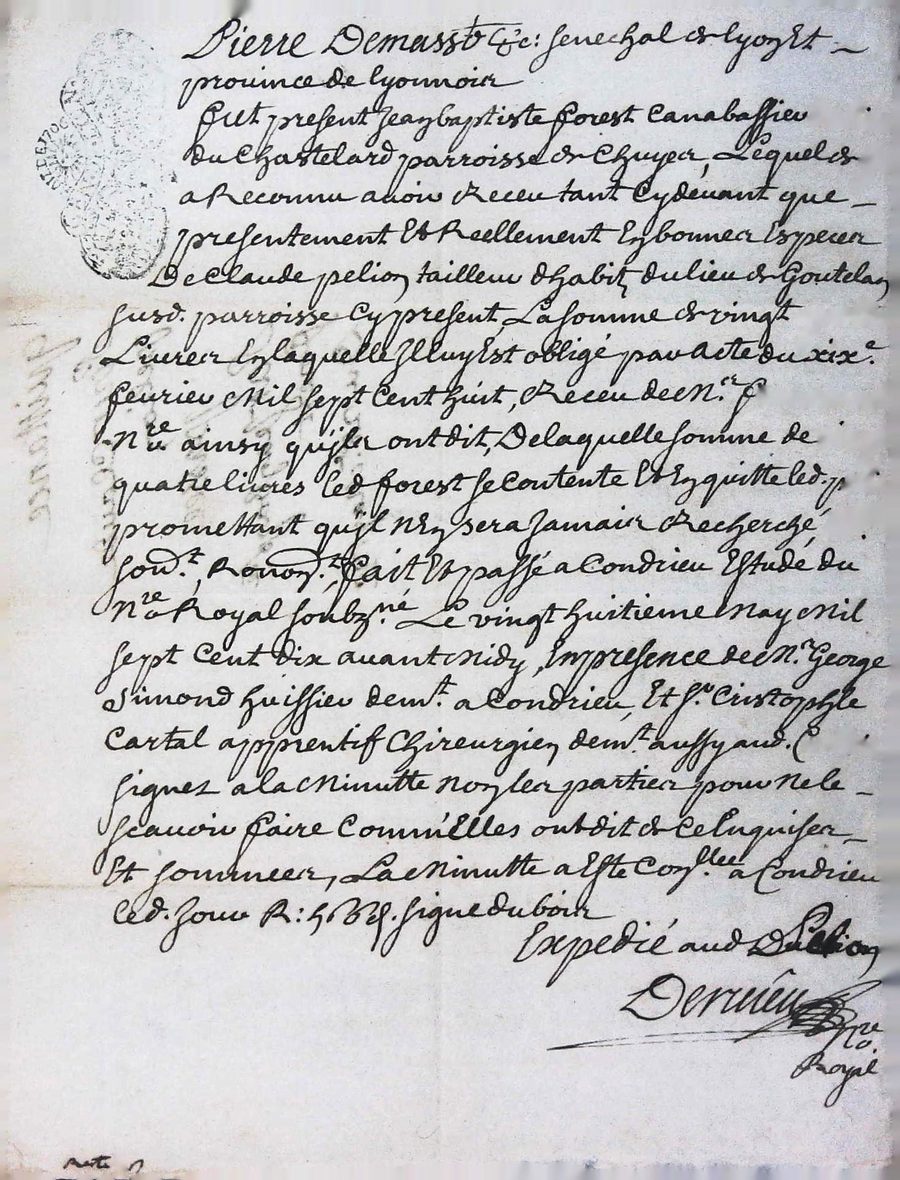 Pierre Demasso &c: senechal de lyon Et
province de lyonnois
fut present Jean baptiste forest Canabassieu
du Chastelard parroisse de Chuyer, Lequel de
a Reconnu avoir Receu tant Cy devant que
presentement Et Reellement En bonnes Especes
De Claude pelion tailleur dhabitz du lieu de Goutelan
susd. parroisse Cy present La somme de vingt
Livres En laquelle Il luy Est obligé par acte du xixe.
fevrier Mil sept Cent huit, Receu de Mr.
Nre ainsy quils ont dit, De laquelle somme de
quatre livres led forest se Contente Et En quitte led. p
promettant quil nEn sera Jamais Recherché
soubt., Renont., fait Et passé a Condrieu Estude du
Nre Royal soubzné Le vingt huitieme May Mil
sept Cent dix avant Midy, En presence de Mr. George
Simond huissier demt. a Condrieu, Et sr. Cristophle
Cartal apprentif Chireurgien demt. aussy aud. C
signez a la Minutte non les parties pour ne le
scavoir faire Comm'Elles ont dit de Ce Enquises
Et sommees, La Minutte a Esté Conllee a Condrieu
led. Jour R: signe dubois
Expedié aud Pelion
Dervieu
Nre
Royal